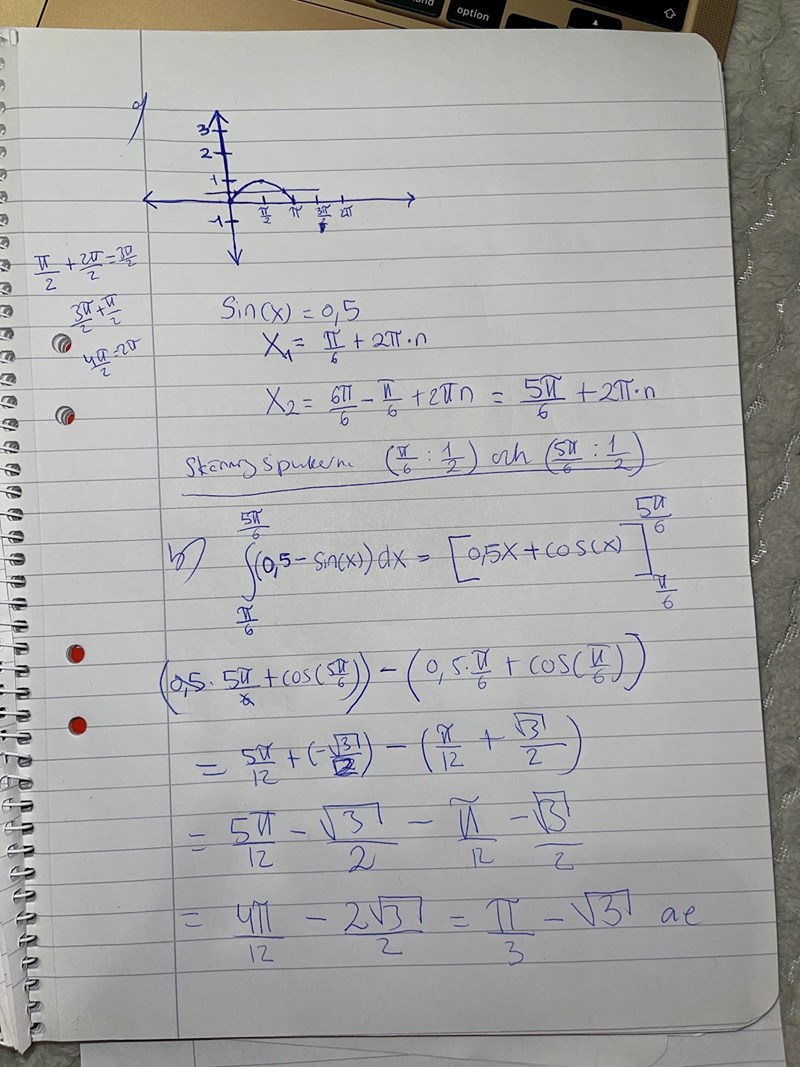 and
option
a)
3
2
1
-1
π/2 π 3π/ 2π
π/2 + 2π/2 = 3π/2
3π/2 + π/2
4π/2 = 2π
Sin(x) = 0,5
X₁ = π/6 + 2π·n
X₂ = 6π/6 - π/6 + 2πn = 5π/6 + 2π·n
(π/6 : 1/2) och (5π/6 : 1/2)
b) ∫_{π/6}^{5π/6} (0,5 - sin(x)) dx = [0,5x + cos(x)]_{π/6}^{5π/6}
(0,5 · 5π/6 + cos(5π/6)) - (0,5 · π/6 + cos(π/6))
= 5π/12 + (-√3/2) - (π/12 + √3/2)
= 5π/12 - √3/2 - π/12 - √3/2
= 4π/12 - 2√3/2 = π/3 - √3 ae